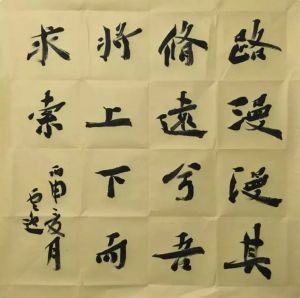 路漫漫其
脩遠兮吾
将上下而
求索
丙申夏月